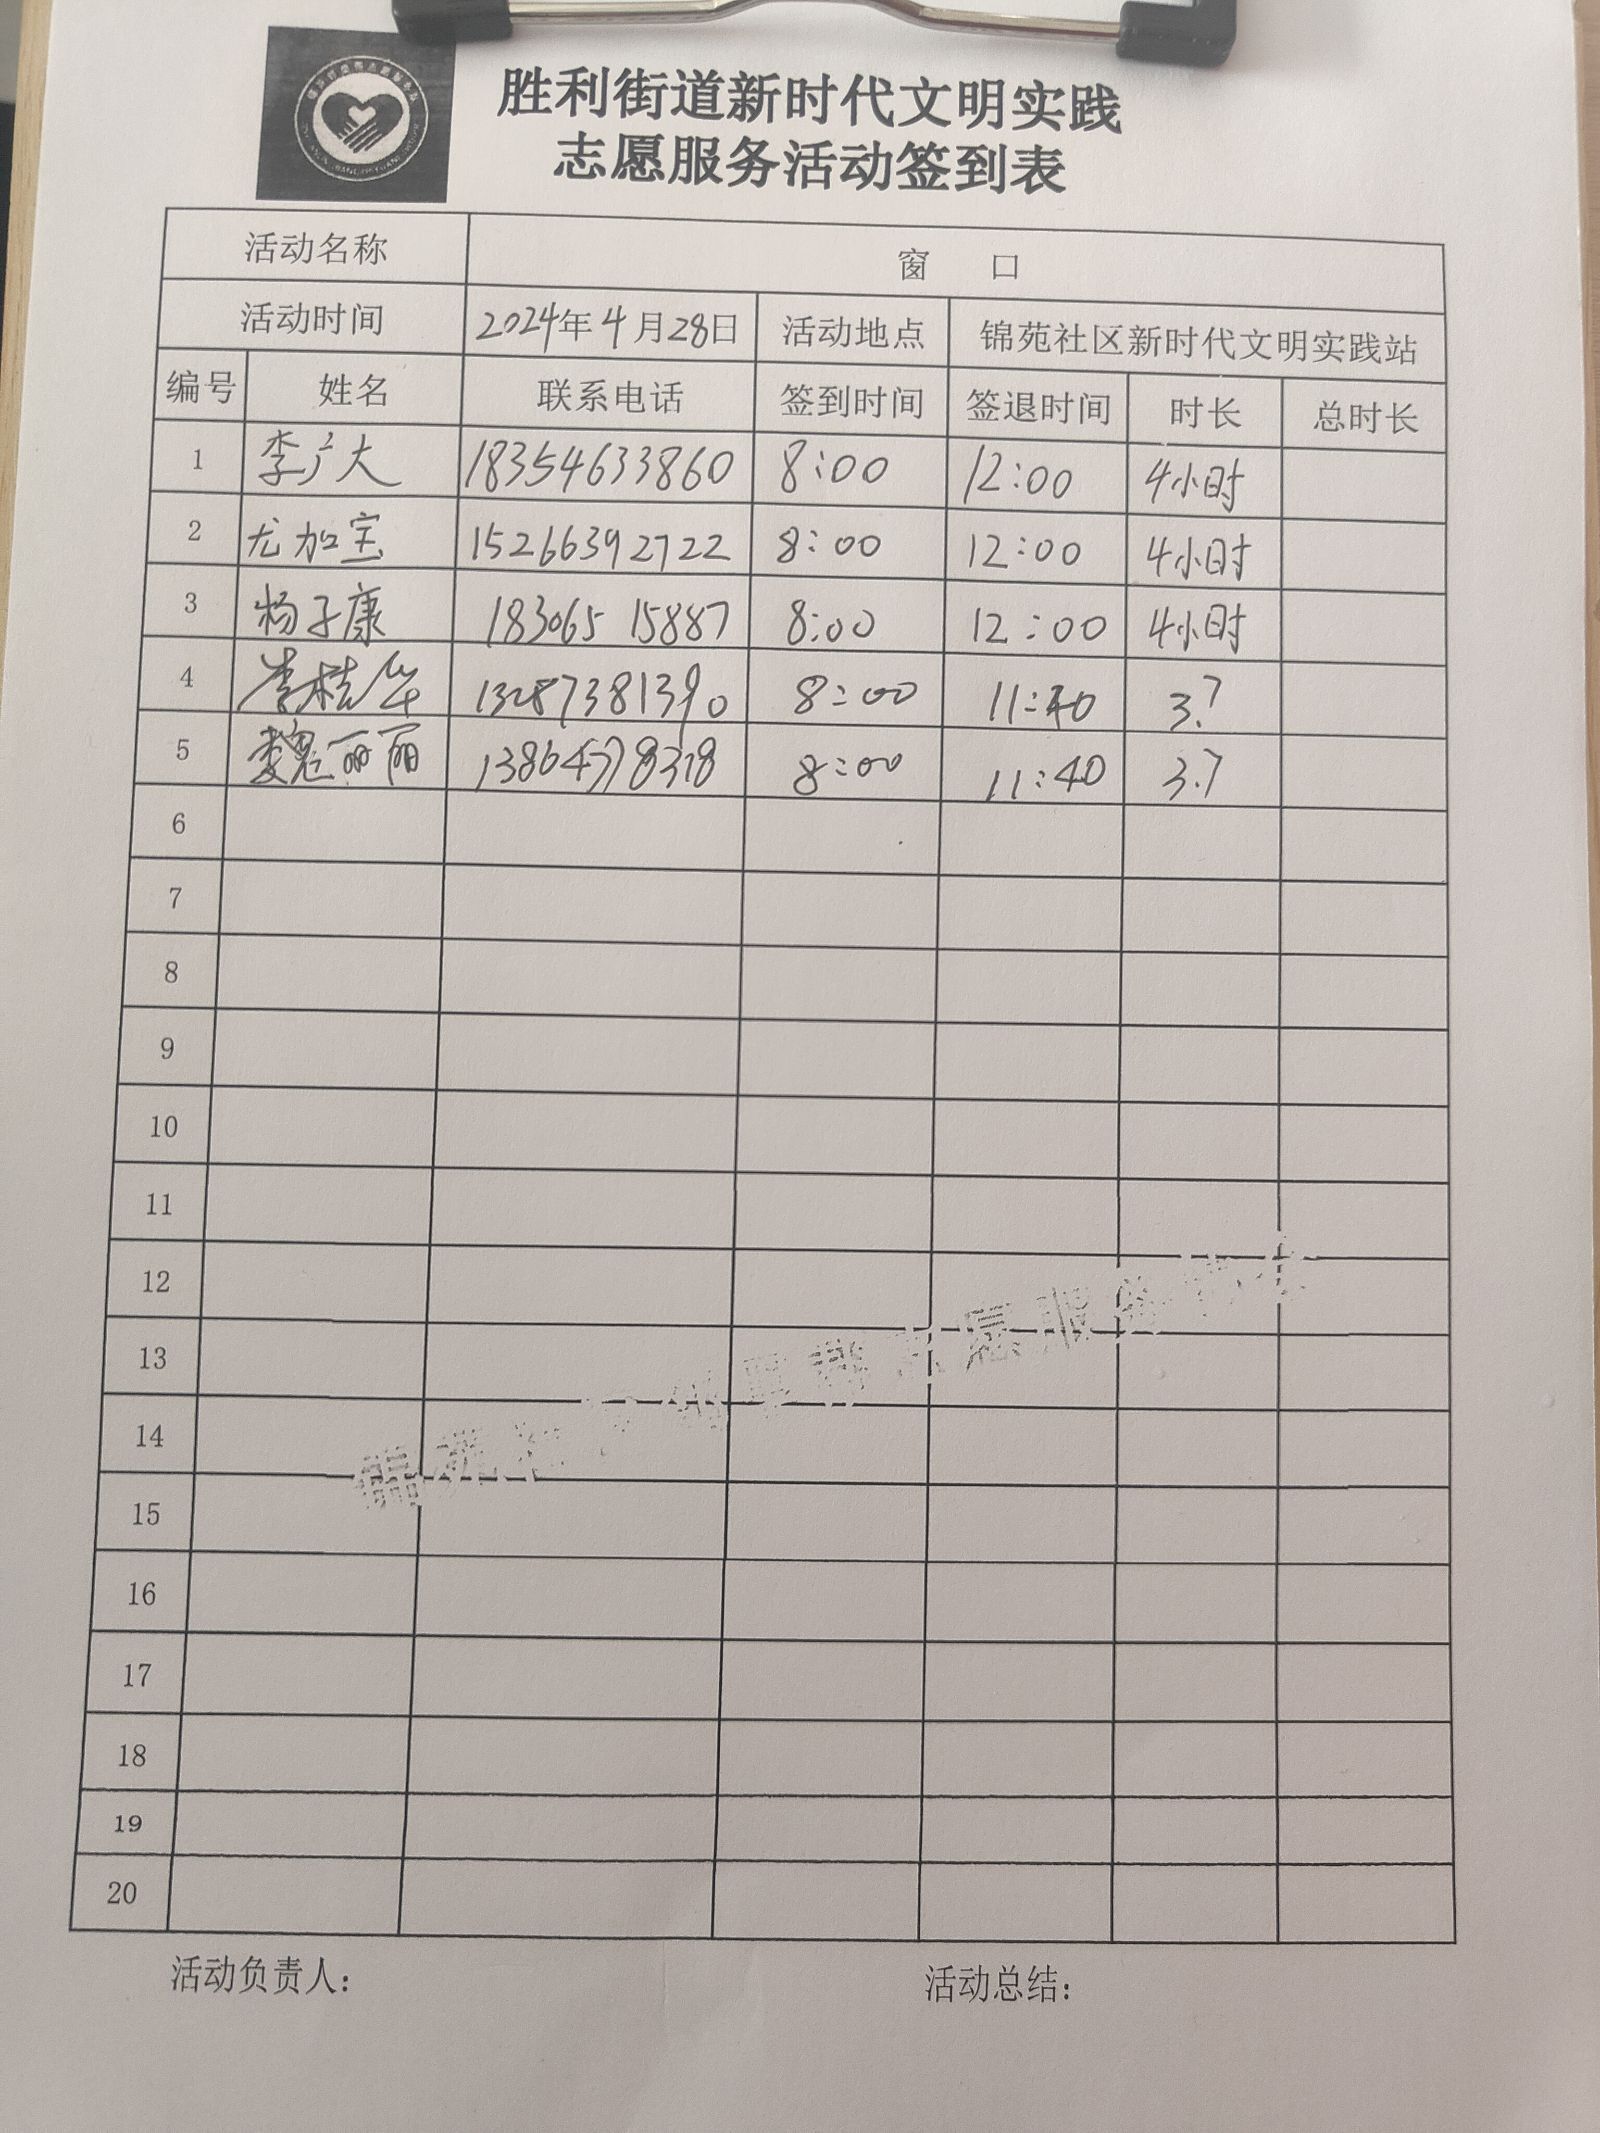 胜利街道新时代文明实践
志愿服务活动签到表
活动名称 窗 口
活动时间 2024年4月28日 活动地点 锦苑社区新时代文明实践站
编号 姓名 联系电话 签到时间 签退时间 时长 总时长
1 李广大 18354633860 8:00 12:00 4小时
2 尤加宝 15266392722 8:00 12:00 4小时
3 杨子康 18306515887 8:00 12:00 4小时
4 李桂华 13287381390 8:00 11:40 3.7
5 魏丽丽 8:00 11:40 3.7
6
7
8
9
10
11
12
13
14
15
16
17
18
19
20
活动负责人： 活动总结：